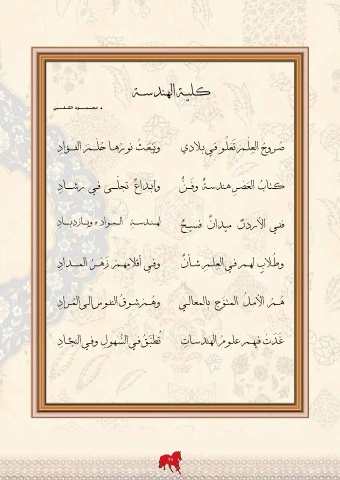 كلية الهندسة
د. محمود الشلبي
صروحُ العِلْمِ تَعلُو في بلادي وتبعثُ نورَها حُلْمَ الفؤادِ
كتابُ العَصْرِ هندسةٌ وفنٌّ وإبداعٌ تجلّى في رشادِ
ففي الأردنِّ ميدانٌ فسيحٌ لهندسةِ الموادِ وبازديادِ
وطلابٍ لهم في العِلمِ شأنٌ وفي أقلامِهم زَهَرُ المدادِ
هُمُ الأملُ المتوّجُ بالمعالي وهُمْ شوقُ النفوسِ إلى المُرادِ
غَدَتْ فيهم علومُ الهندساتِ تُطبَّقُ في السُّهولِ وفي النِّجادِ